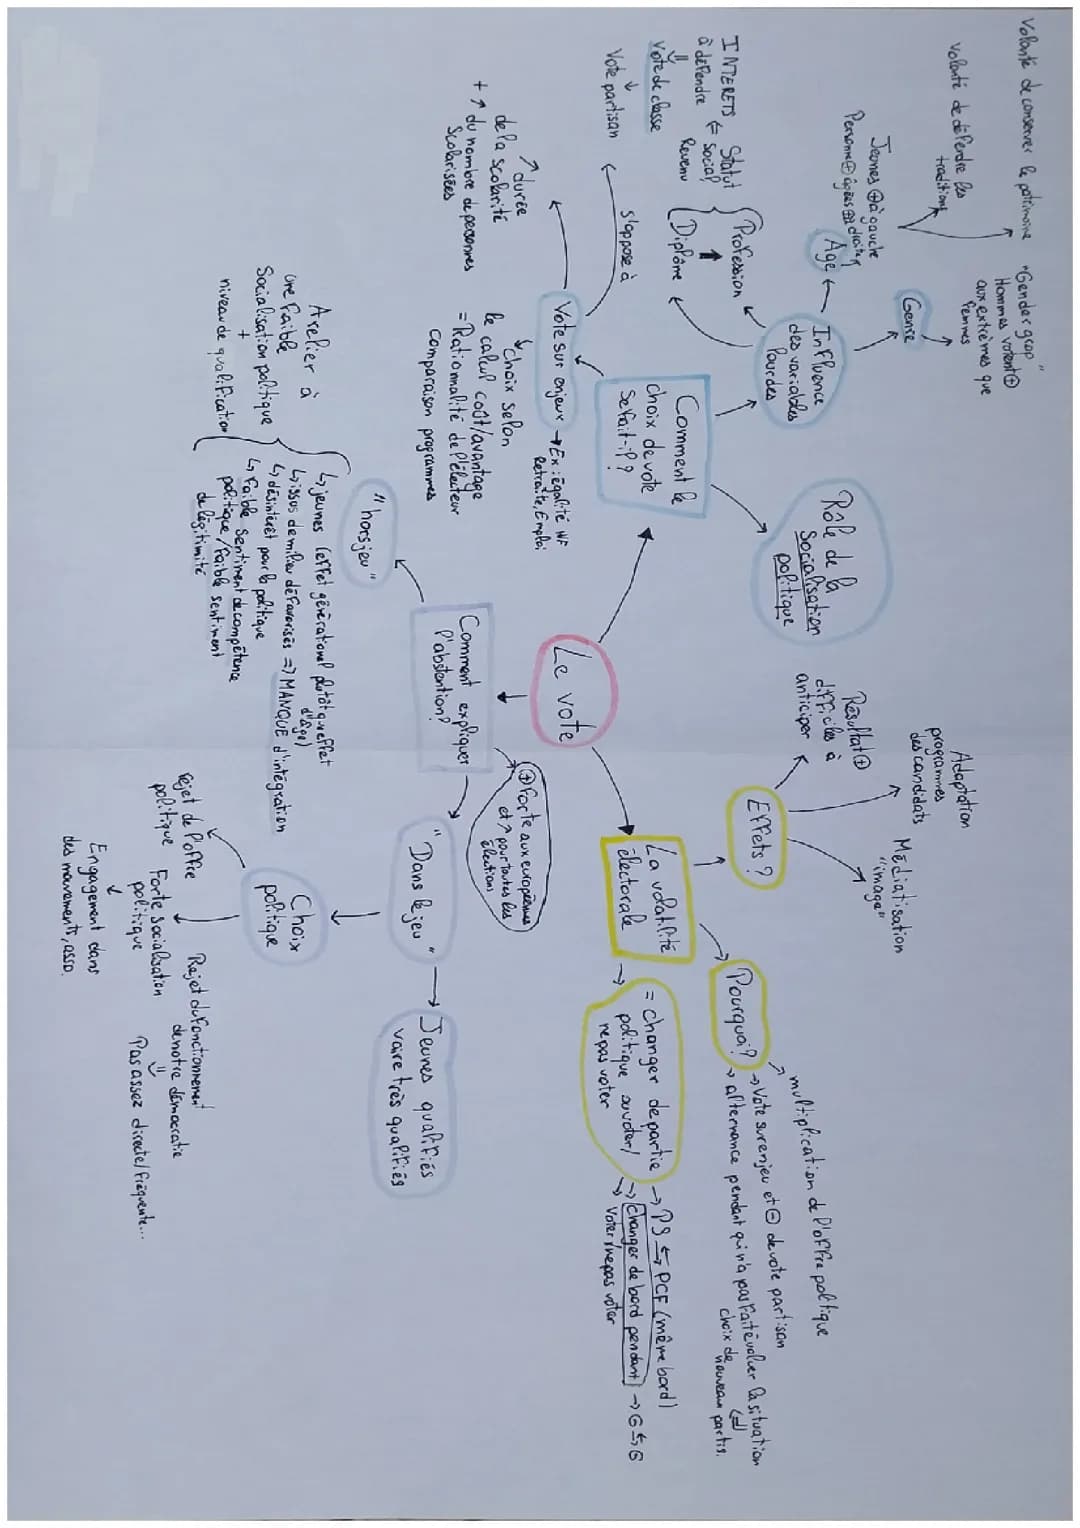 Volonté de conserver le patrimoine
Volonté de défendre les
traditions
Jeunes ⊕ à gauche
Personne ⊕ âgées ⊕ à droite
Age
"Gender gap"
Hommes votent ⊕
aux extrêmes que
Femmes
Genre
Influence
des variables
lourdes
INTERETS
à défendre
⇐ Statut
Social
Revenu
Profession
Diplôme
vote de classe
Vote partisan
s'oppose à
Comment le
choix de vote
se fait-il ?
Rôle de la
Socialisation
politique
Vote sur enjeux
→ Ex : égalité HF
Retraite, Emploi
↗ durée
de la scolarité
+ ↗ du nombre de personnes
Scolarisées
Choix selon
le calcul coût/avantage
= Rationnalité de l'électeur
comparaison programmes
Le vote
Comment expliquer
l'abstention?
"hors jeu"
↳ jeunes (effet générationel plutôt que effet
d'âge)
↳ issus de milieu défavorisés => MANQUE d'intégration
↳ désintérêt pour la politique
↳ Faible sentiment de compétence
politique / faible sentiment
de légitimité
A relier à
une faible
Socialisation politique
+
niveau de qualification
⊕ forte aux européennes
et ↗ pour toutes les
élections
"Dans le jeu"
→ Jeunes qualifiés
voire très qualifiés
Choix
politique
rejet de l'offre
politique
Forte socialisation
politique
Engagement dans
des mouvements, asso.
Rejet du fonctionnement
de notre démocratie
Pas assez directe/fréquente...
La volatilité
électorale
Effets ?
Résultat ⊕
difficiles à
anticiper
Adaptation
programmes
des candidats
Médiatisation
"image"
Pourquoi ?
multiplication de l'offre politique
→ Vote sur enjeu et ⊖ de vote partisan
→ alternance pendant qui n'a pas fait évoluer la situation
choix de
nouveaux partis.
= changer de partie
politique ou voter/
ne pas voter
→ PS ⇆ PCF (même bord)
→ Changer de bord pendant → G ⇆ G
→ Voter/ne pas voter